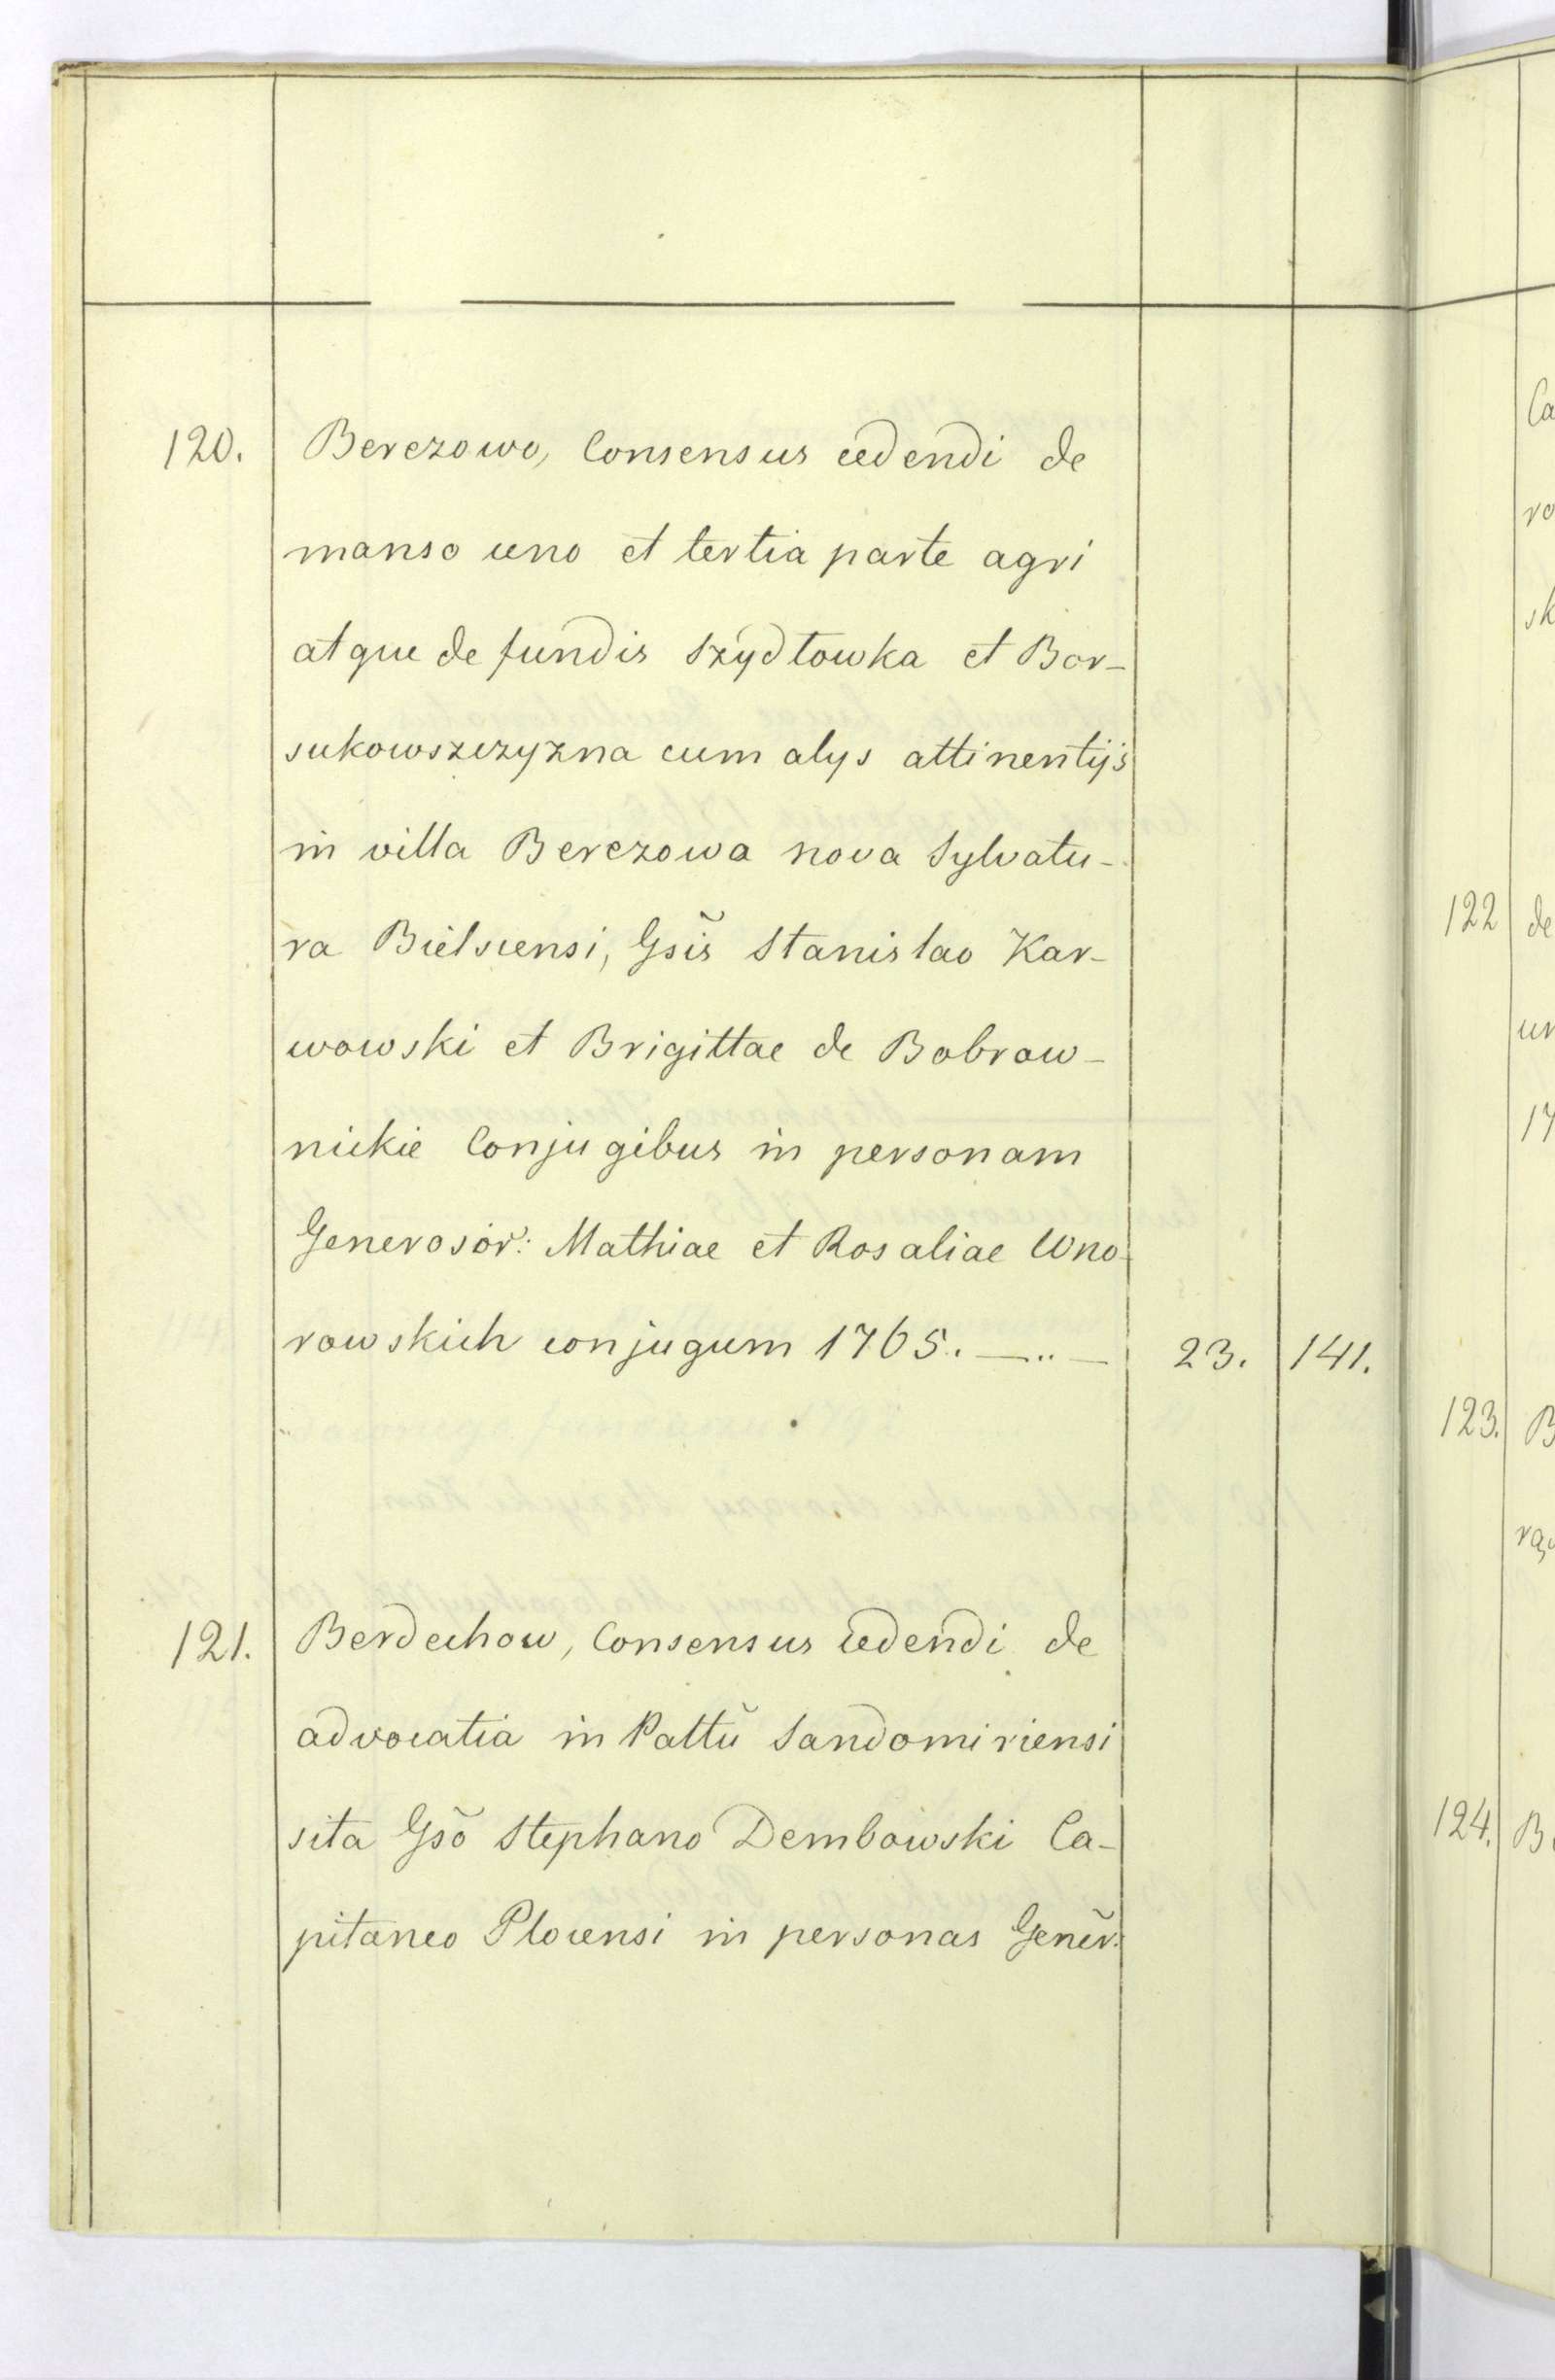 120. Berezowo, Consensus cedendi de
manso uno et tertia parte agri
atque de fundis Szydłowka et Bor-
sukowszczyzna cum alys attinentijs
in villa Berezowa nova Sylvatu-
ra Bielscensi, Gsĩs Stanislao Kar-
wowski et Brigittae de Bobrow-
nickie Conjugibus in personam
Generosor: Mathiae et Rosaliae Uno-
rowskich conjugum 1765. —..— 23. 141.
121. Berdechow, Consensus cedendi de
advocatia in Pałtũ Sandomiriensi
sita Gsõ Stephano Dembowski Ca-
pitaneo Plocensi in personas Gener:
Ca
ro
sk
122 de
ur
17
123. B
124. B